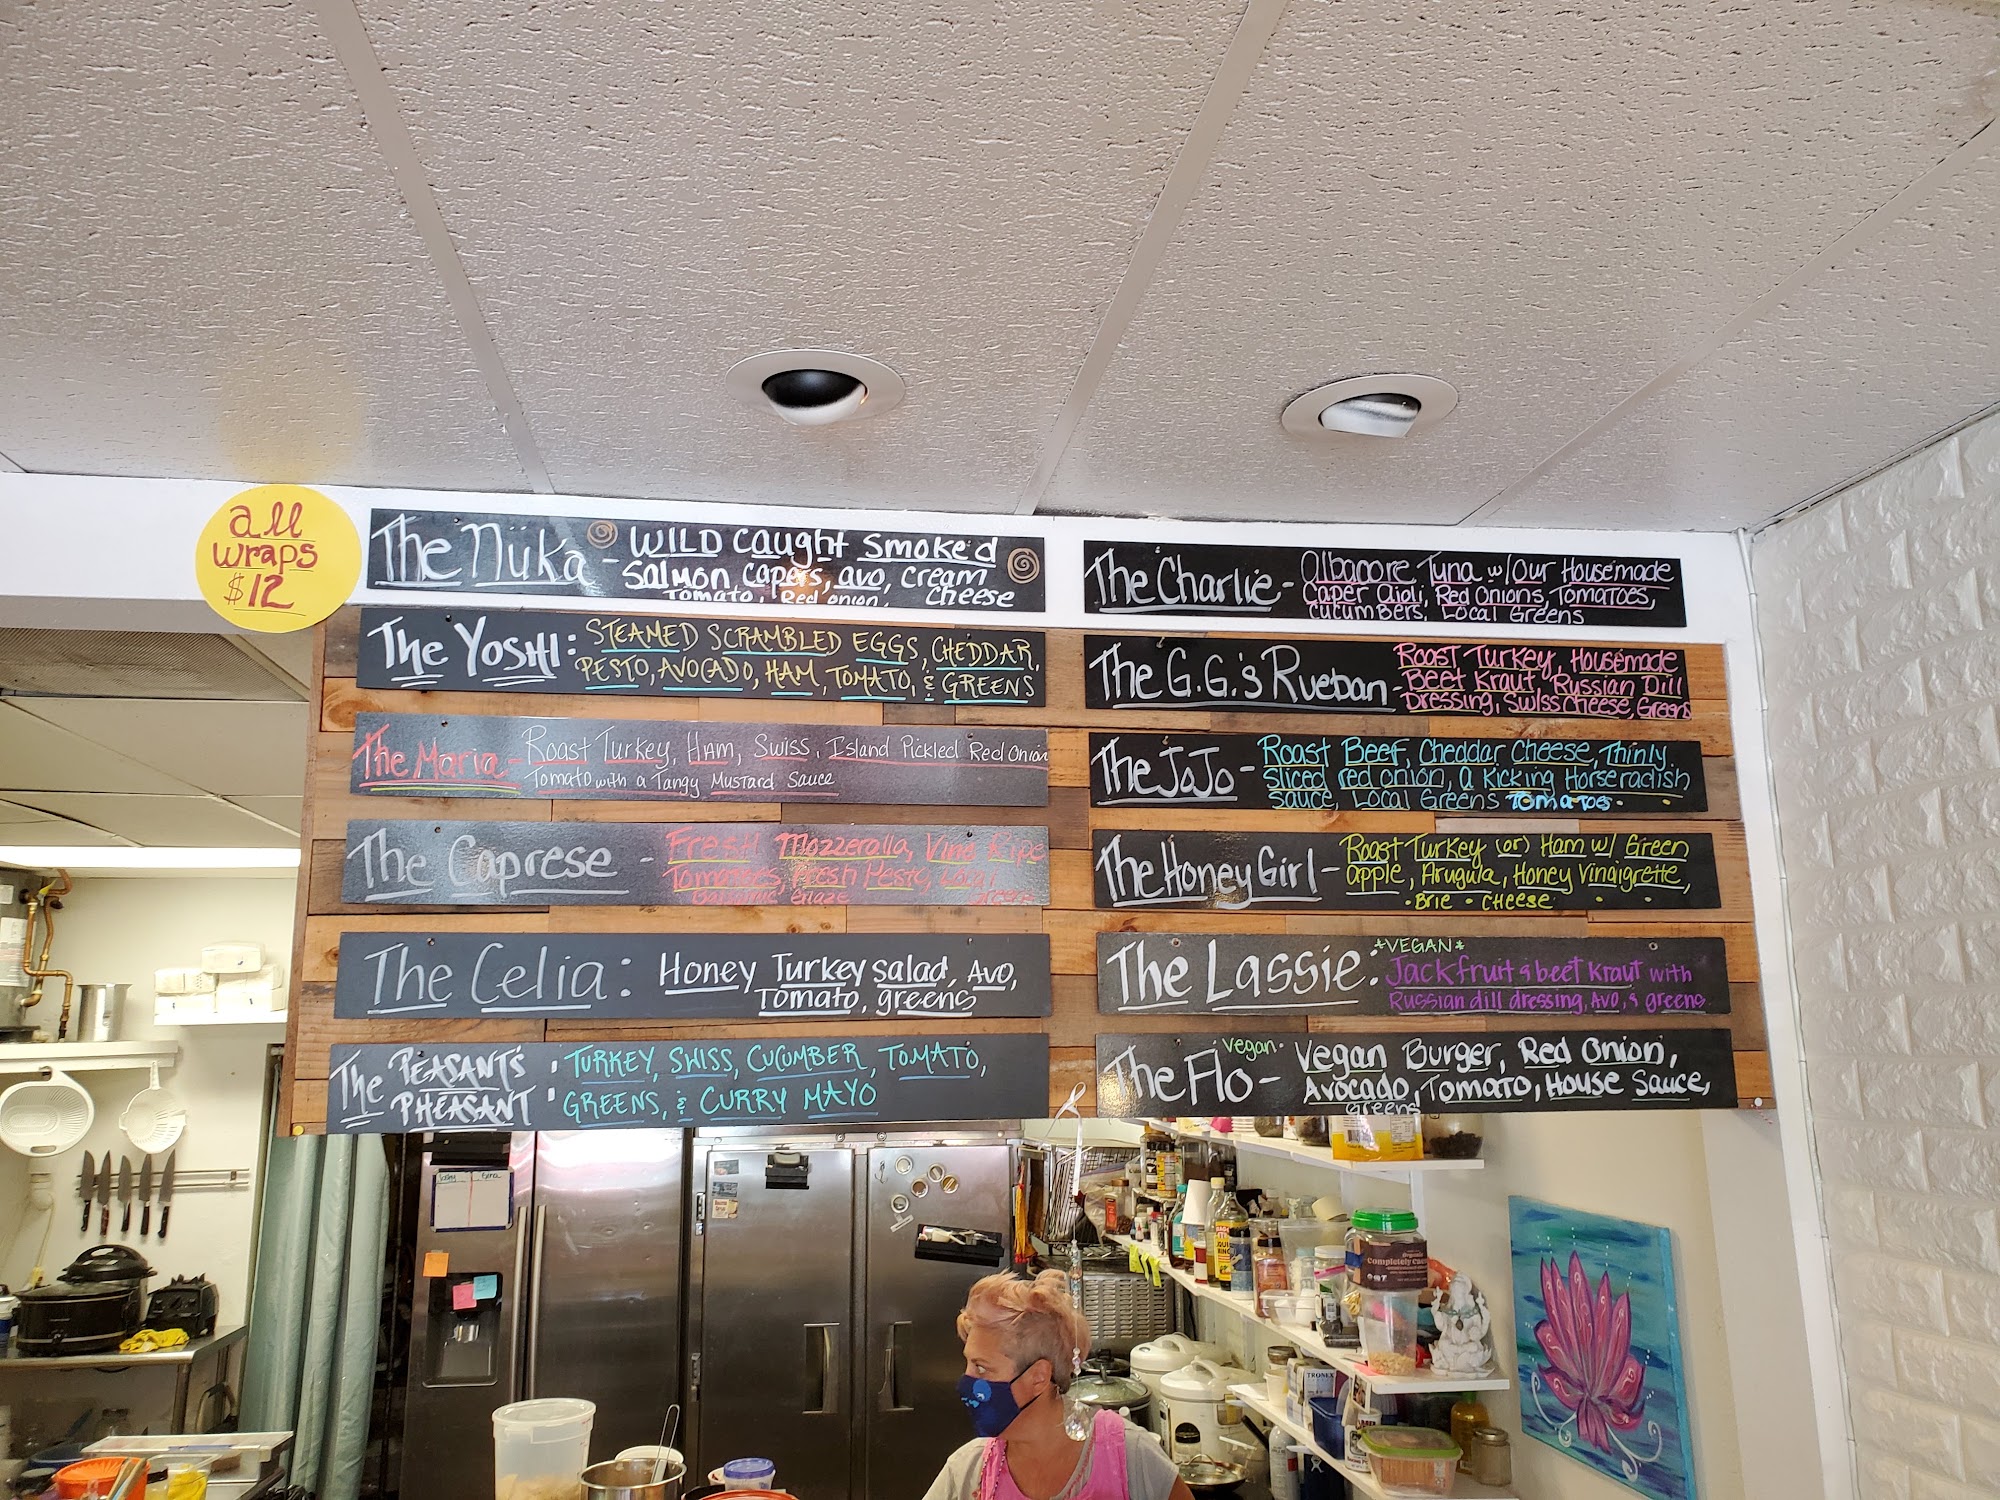 all
wraps
$12
The Nüka - WILD Caught Smoked
Salmon, Capers, avo, Cream
Tomato, Red onion, Cheese
The Yoshi: STEAMED SCRAMBLED EGGS, CHEDDAR,
PESTO, AVOCADO, HAM, TOMATO, & GREENS
The Maria - Roast Turkey, Ham, Swiss, Island Pickled Red Onion
Tomato with a Tangy Mustard Sauce
The Caprese - Fresh Mozzeralla, Vine Ripe
Tomatoes, Fresh Pesto, Local
Balsamic Glaze Greens
The Celia: Honey Turkey salad, Avo,
Tomato, greens
The PEASANT'S PHEASANT: TURKEY, SWISS, CUCUMBER, TOMATO,
GREENS, & CURRY MAYO
The Charlie - Albacore Tuna w/ Our Housemade
Caper Aioli, Red Onions, Tomatoes,
Cucumbers, Local Greens
The G.G.'s Rueban - Roast Turkey, Housemade
Beet Kraut, Russian Dill
Dressing, Swiss Cheese, Greens
The JoJo - Roast Beef, Cheddar Cheese, Thinly
Sliced red onion, a Kicking Horseradish
Sauce, Local Greens Tomatoes
The Honey Girl - Roast Turkey (or) Ham w/ Green
apple, Arugula, Honey Vinaigrette,
• Brie • Cheese
The Lassie: *VEGAN*
Jackfruit & beet Kraut with
Russian dill dressing, Avo, & greens
The Flo - Vegan. Vegan Burger, Red Onion,
Avocado, Tomato, House Sauce,
greens